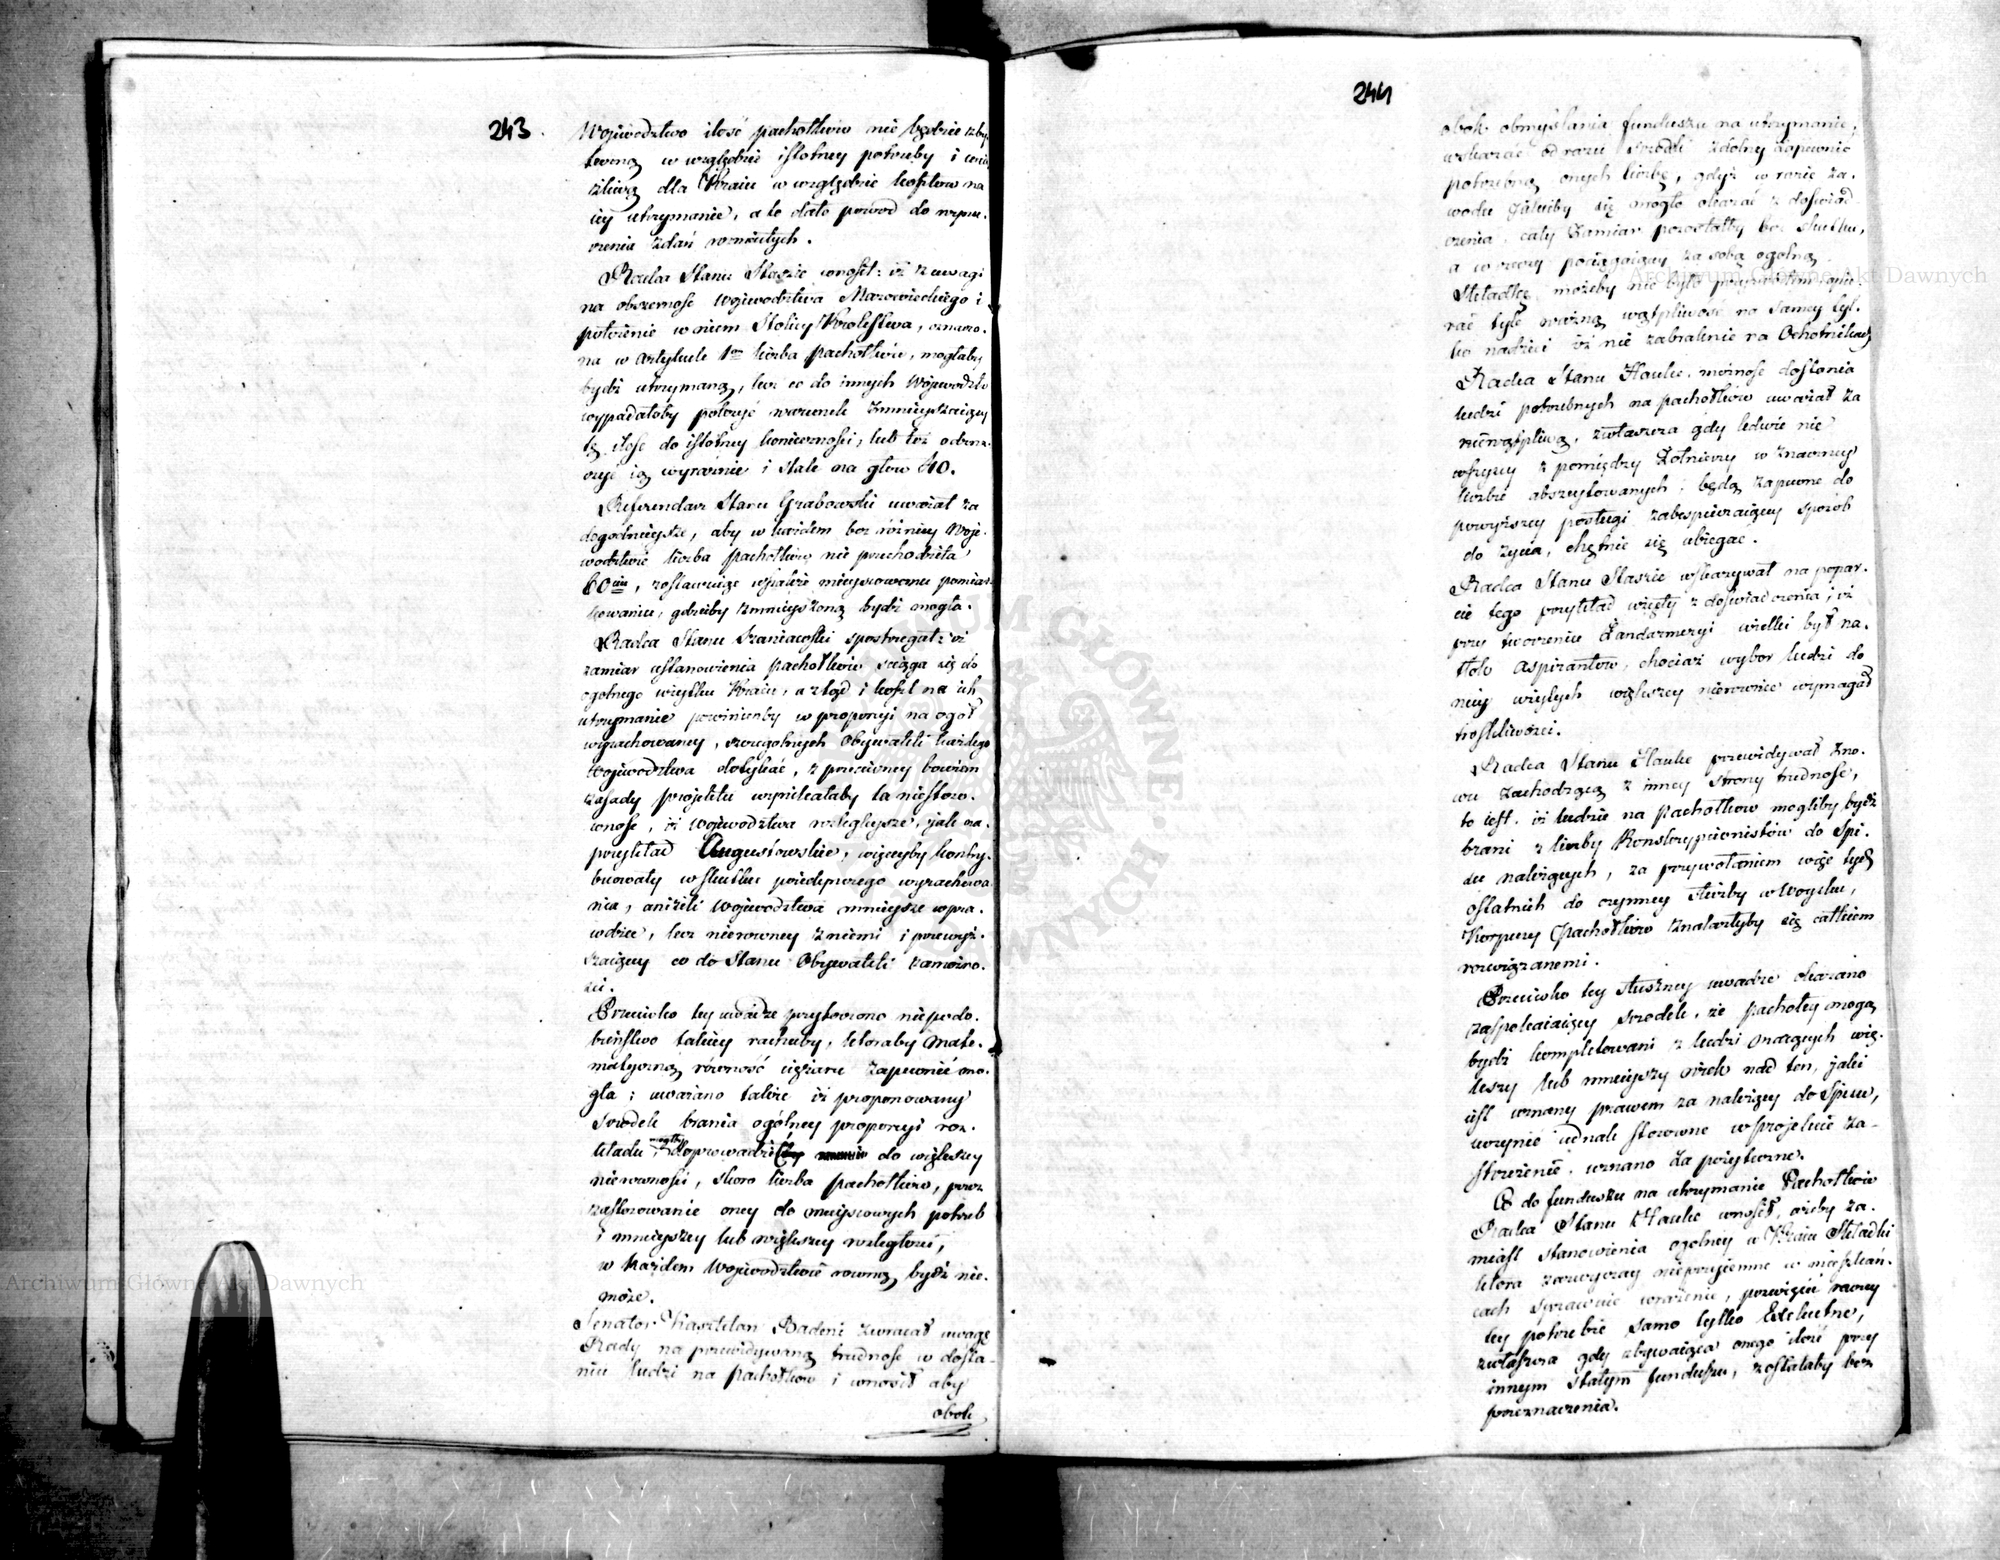 243.
Województwo ilość pachołków nie będzie zby-
teczną w względzie istotney potrzeby i ucią
żliwą dla Kraiu w względzie kosztów na
iey utrzymanie, a to dało powód do wynu-
rzenia zdań rozmaitych.
Radca Stanu Staszic wnosił: iż z uwagi
na obszerność Województwa Mazowieckiego i
położenie w niem Stolicy Królestwa, oznaczo-
na w Artykule 1m liczba pachołków, mogłaby
bydź utrzymaną, lecz co do innych Województw
wypadałoby położyć warunek zmnieyszaiący
tę ilość do istotney konieczności, lub też ozna-
czyć ią wyraźnie i stale na głów 40.
Referendarz Stanu Grabowski uważał za
dogodnieysze, aby w każdem bez różnicy Woje-
wodztwie liczba pachołków nie przechodziła
60ciu, zostawuiąc wszakże mieyscowemu pomiar-
kowaniu, gdzieby zmnieyszoną bydź mogła.
Radca Stanu Szaniawski spostrzegał: iż
zamiar ustanowienia pachołków sciąga się do
ogólnego użytku Kraiu, a ztąd i koszt na ich
utrzymanie powinienby w proporcyi na ogół
wyrachowaney, szczególnych Obywateli każdego
Województwa dotykać, z przeciwney bowiem
zasady projektu wynikałaby ta niestoso-
wność, iż Województwa rozlegleysze, jak na-
przykład Augustowskie, więceyby kontry-
buowały w skutku poiedynczego wyrachowa-
nia, aniżeli Województwa mnieysze wpra-
wdzie, lecz nierówney z niemi i przewyż-
szaiącey co do Stanu Obywateli zamożno-
ści.
Przeciwko tey uwadze przytoczono niepodo-
bieństwo takiey rachuby, któraby mate-
matyczną równość ciężaru zapewnić mo-
gła; uważano także iż proponowany
srodek brania ogólney proporcyi roz-
kładu, mógłby doprowadzić do większey
nierówności, skoro liczba pachołków, przez
zastosowanie oney do mieyscowych potrzeb
i mnieyszey lub większey rozległości,
w każdem Województwie równą bydź nie-
może.
Senator Kasztelan Badeni zwracał uwagę
Rady na przewidywaną trudność w dosta-
niu ludzi na pachołków i wnosił aby
obok
244
obok obmyślania funduszu na utrzymanie,
wskazać od razu srodek zdolny zapewnić
potrzebną onych liczbę, gdyż w razie za-
wodu jakiby się mógł okazać z doświad-
czenia, cały zamiar pozostałby bez skutku,
a w rzeczy pociągaiącey za sobą ogólną
Składkę, możeby nie było opie-
rać tyle ważną wątpliwość na samey tyl-
ko nadziei iż nie zabraknie na Ochotnikach
Radca Stanu Hauke, możność dostania
ludzi potrzebnych na pachołków uważał za
niewątpliwą, zwłaszcza gdy ledwie nie
wszyscy z pomiędzy Żołnierzy w znaczney
liczbie abszeytowanych, będą zapewne do
powyższey posługi zabespieczaiącey sposób
do życia, chętnie się ubiegać.
Radca Stanu Staszic wskazywał na popar-
cie tego przykład wzięty z doświadczenia, iż
przy tworzeniu Żandarmeryi wielki był na-
tłok Aspirantów, chociaż wybór ludzi do
niey wziętych większey nierównie wymagał
troskliwości.
Radca Stanu Hauke przewidywał zno-
wu zachodzącą z inney strony trudność,
to iest, iż ludzie na Pachołków mogliby bydź
brani z liczby Konskrypcionistów do Spi-
su należących, za przywołaniem więc tych
ostatnich do czynney służby w Woysku,
Korpusy Pachołków znalazłyby się całkiem
rozwiązanemi.
Przeciwko tey słuszney uwadze okazano
zaspokaiaiący srodek, że pachołcy mogą
bydź kompletowani z ludzi maiących wię-
kszy lub mnieyszy wiek nad ten, jaki
iest uznany prawem za należący do Spisu,
uczynić jednak stosowne w projekcie za-
strzeżenie, uznano za pożyteczne.
Co do funduszu na utrzymanie Pachołków
Radca Stanu Hauke wnosił, ażeby za-
miast stanowienia ogólney w Kraiu Składki
która zazwyczay nieprzyiemne w mieszkań-
cach sprawuie wrażenie, poświęcić raczey
tey potrzebie samo tylko Exekutne,
zwłaszcza gdy zbywaiąca onego ilość przy
innym stałym funduszu, zostałaby bez
przeznaczenia.
Archiwum Główne Akt Dawnych
Archiwum Główne Akt Dawnych